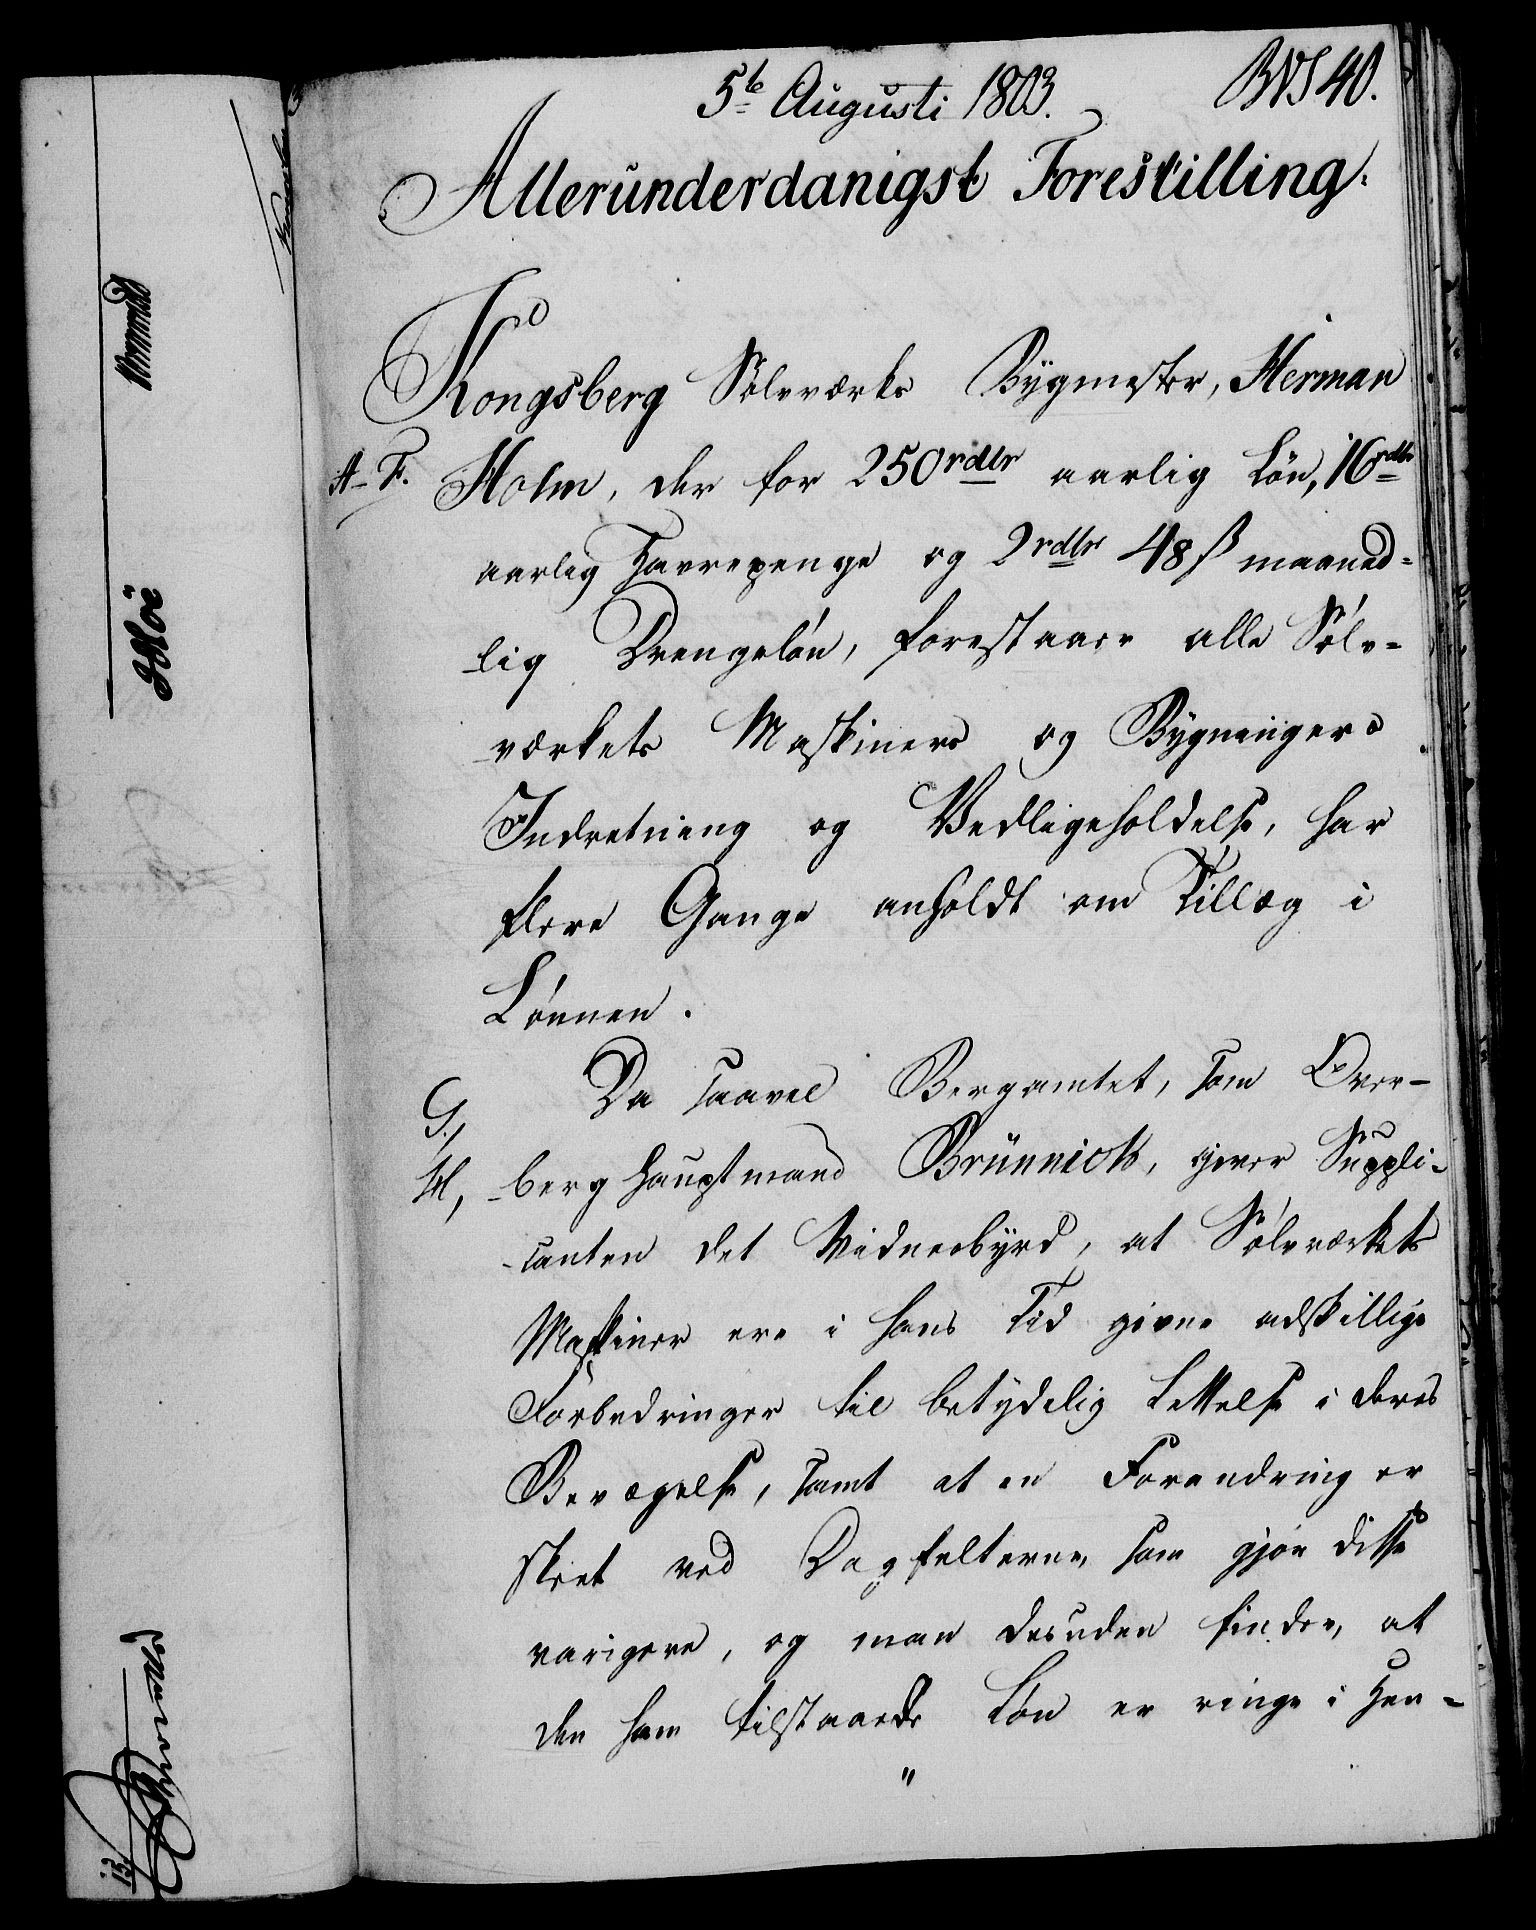 5te Augusti 1803.
BVS 40.
Allerunderdanigst Forestilling.
Kongsberg Sølvværks Bygmester, Herman
A-F. Holm, der for 250 rdlr aarlig Løn, 16 rdlr
aarlig Havrepenge og 2 rdlr 48 ß maaned-
-lig Drengeløn, forestaaer alle Sølv-
-værkets Maskiners og Bygningers
Indretning og Vedligeholdelse, har
flere Gange anholdt om Tillæg i
Lønnen.
Da saavel Bergamtet, som Over-
G.,
H, -berghauptmand Brünnich, giver Suppli-
-canten det Vidnesbyrd, at Sølvværkets
Maskiner ere i hans Tid givne adskillige
Forbedringer til betydelig Lettelse i deres
Bevægelse, samt at en Forandring er
skeet ved Dagfelterne, som gjør disse
varigere, og man desuden finder, at
den ham tilstaaede Løn er ringe i Hen-
"